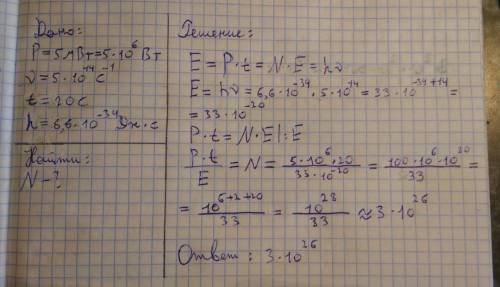 Дано:
P = 5 МВт = 5·10⁶ Вт
ν = 5·10¹⁴ с⁻¹
t = 20 с
h = 6,6·10⁻³⁴ Дж·с
Найти:
N - ?
Решение:
E = P·t = N·E = hν
E = hν = 6,6·10⁻³⁴ · 5·10¹⁴ = 33·10⁻³⁴⁺¹⁴ =
= 33·10⁻²⁰
P·t = N·E |:E
P·t/E = N = 5·10⁶·20/33·10⁻²⁰ = 100·10⁶·10²⁰/33 =
= 10⁶⁺²⁺²⁰/33 = 10²⁸/33 ≈ 3·10²⁶
Ответ: 3·10²⁶